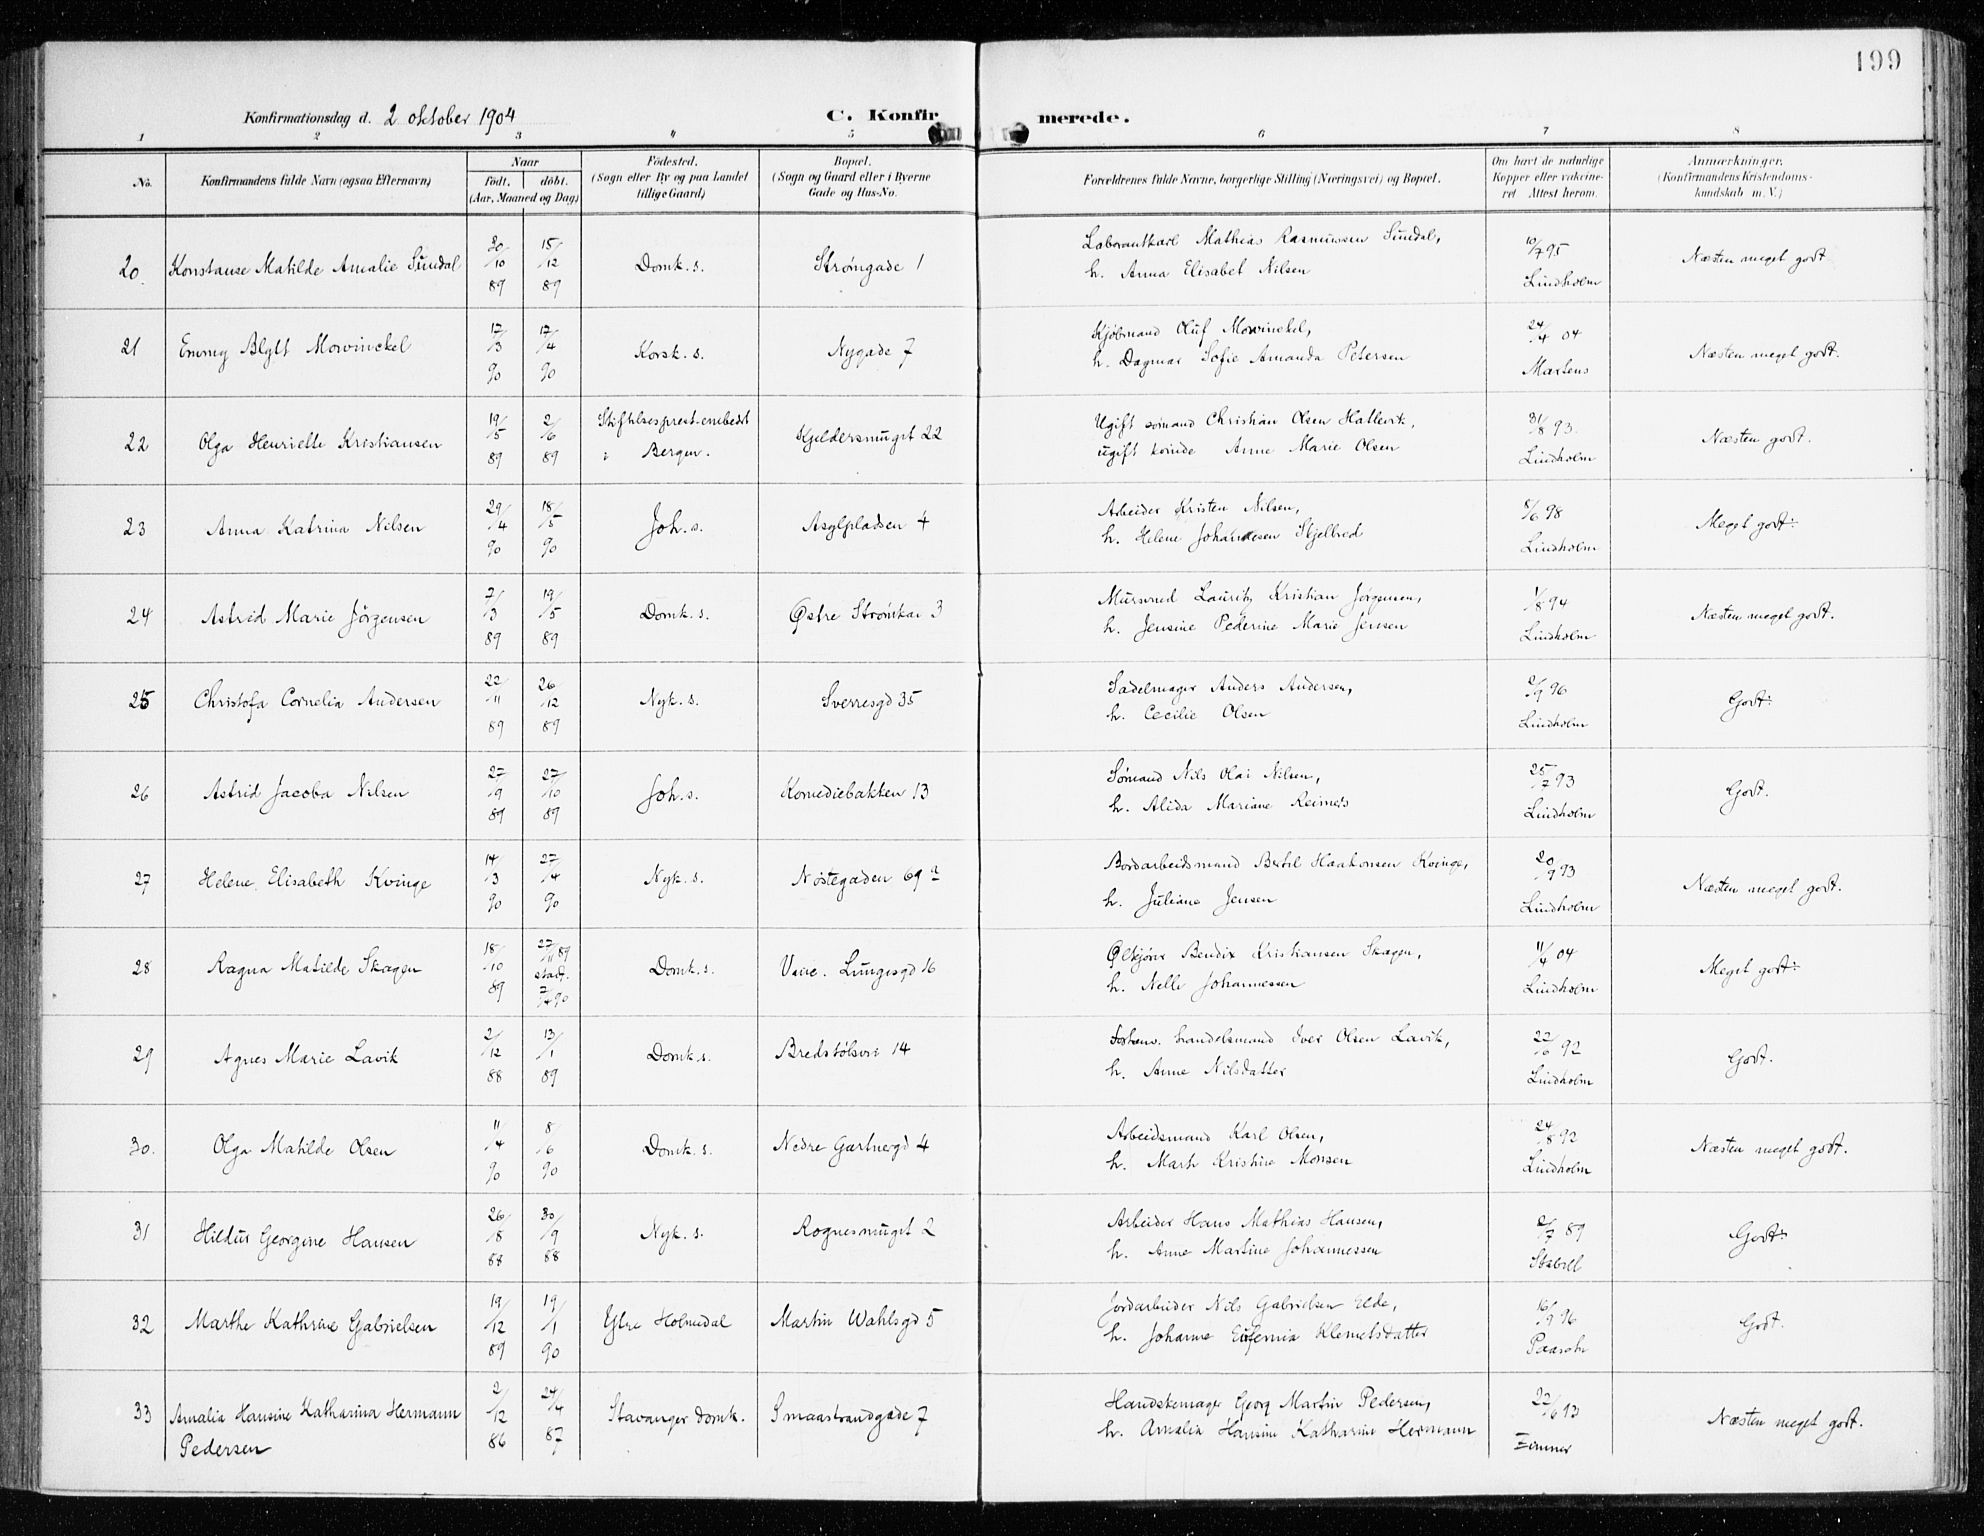 199
Konfirmationsdag d. 2 oktober 1904
C. Konfirmerede.
1 2 3 " 5 6 7 8
No.
Konfirmandens fulde Navn (ogsaa Efternavn)
Naar
født. døbt.
(Aar, Maaned og Dag)
Födested.
(Sogn eller By og paa Landet
tillige Gaard)
Bopæl.
(Sogn og Gaard eller i Byerne
Gade og Hus-No.
Forældrenes fulde Navne, borgerlige Stilling (Næringsvei) og Bopæl.
Om havt de naturlige
Kopper eller vaccine-
ret Attest herom.
Anmærkninger.
(Konfirmandens Kristendoms-
kundskab m. V.)
20. Konstanse Matilde Amalie Sundal 20/10 89 15/12 89 Domk. s. Strømgade 1
Laborantkarl Mathias Rasmussen Sundal,
h. Anna Elisabet Nilsen
10/7 95 Lindholm
Næsten meget godt
21 Emmy Blytt Mowinckel 17/3 90 17/4 90 Korsk. s. Nygade 7
Kjøbmand Oluf Mowinckel,
h. Dagmar Sofie Amanda Petersen
24/4 04 Martens
Næsten meget godt.
22 Olga Henriette Kristiansen 19/5 89 2/6 89 Stiftelsesprest-embedet
i Bergen. Kjeldersmuget 22
Ugift sømand Christian Olsen Hatlevik,
ugift kvinde Anne Marie Olsen
31/8 93. Lindholm
Næsten godt.
23 Anna Katrina Nilsen 29/4 90 18/5 90 Joh. s. Asylpladsen 4
Arbeider Kristen Nilsen,
h. Helene Johannesen Skjelbred
8/6 98 Lindholm
Meget godt.
24 Astrid Marie Jörgensen 7/3 89 19/5 89 Domk. s. Østre Strømkai 3
Mursvend Lauritz Kristian Jørgensen,
h. Jensine Pederine Marie Jensen
1/8 94 Lindholm
Næsten meget godt.
25 Christofa Cornelia Andersen 22/11 89 26/12 89 Nyk. s. Sverresgd 35
Sadelmager Anders Andersen,
h. Cecilie Olsen
2/9 96 Lindholm
Godt.
26 Astrid Jacoba Nilsen 27/9 89 27/10 89 Joh. s. Komediebakken 13
Sømand Nils Olai Nilsen,
h. Alida Mariane Reimers
25/7 93 Lindholm
Godt.
27 Helene Elisabeth Kvinge 14/3 90 27/4 90 Nyk. s. Nøstegaden 69
Bordarbeidsmand Bertel Haakonsen Kvinge,
h. Juliane Jensen
20/9 93 Lindholm
Næsten meget godt.
28 Ragna Matilde Skagen 18/10 89 27/11 89
stadf.
7/4 90 Domk. s. Lungesgd 16
Ølkjører Bendix Kristiansen Skagen,
h. Nelle Johannessen
11/4 04 Lindholm
Meget godt.
29 Agnes Marie Lavik 2/12 88 13/1 89 Domk. s. Bredstølsvei 14
handelsmand Iver Olsen Lavik,
h. Anne Nilsdatter
22/6 92 Lindholm
Godt.
30. Olga Matilde Olsen 11/4 90 8/6 90 Domk. s. Nedre Gartnergd 4
Arbeidsmand Karl Olsen,
h. Marh Kristine Monsen
24/8 92 Lindholm
Næsten meget godt.
31 Hildur Georgine Hansen 26/8 88 30/9 88 Nyk. s. Rognesmuget 2
Arbeider Hans Mathias Hansen,
h. Anne Martine Johannessen
2/7 89 Stabell
Godt.
32 Marthe Kathrine Gabrielsen 19/12 89 19/1 90 Ytre Holmedal Martin Wahlsgd 5
Jordarbeider Nils Gabrielsen Elde,
h. Johanne Eufemia Klemetsdatter
16/9 96 Paasche
Godt.
33 Amalia Hansine Katharina Hermann
Pedersen 2/12 86 24/4 87 Stavanger domk. Smaastrandgade 7
Handskemager Georg Martin Pedersen,
h. Amalia Hansine Katharine Hermann
22/6 93 Zimmer
Næsten meget godt.